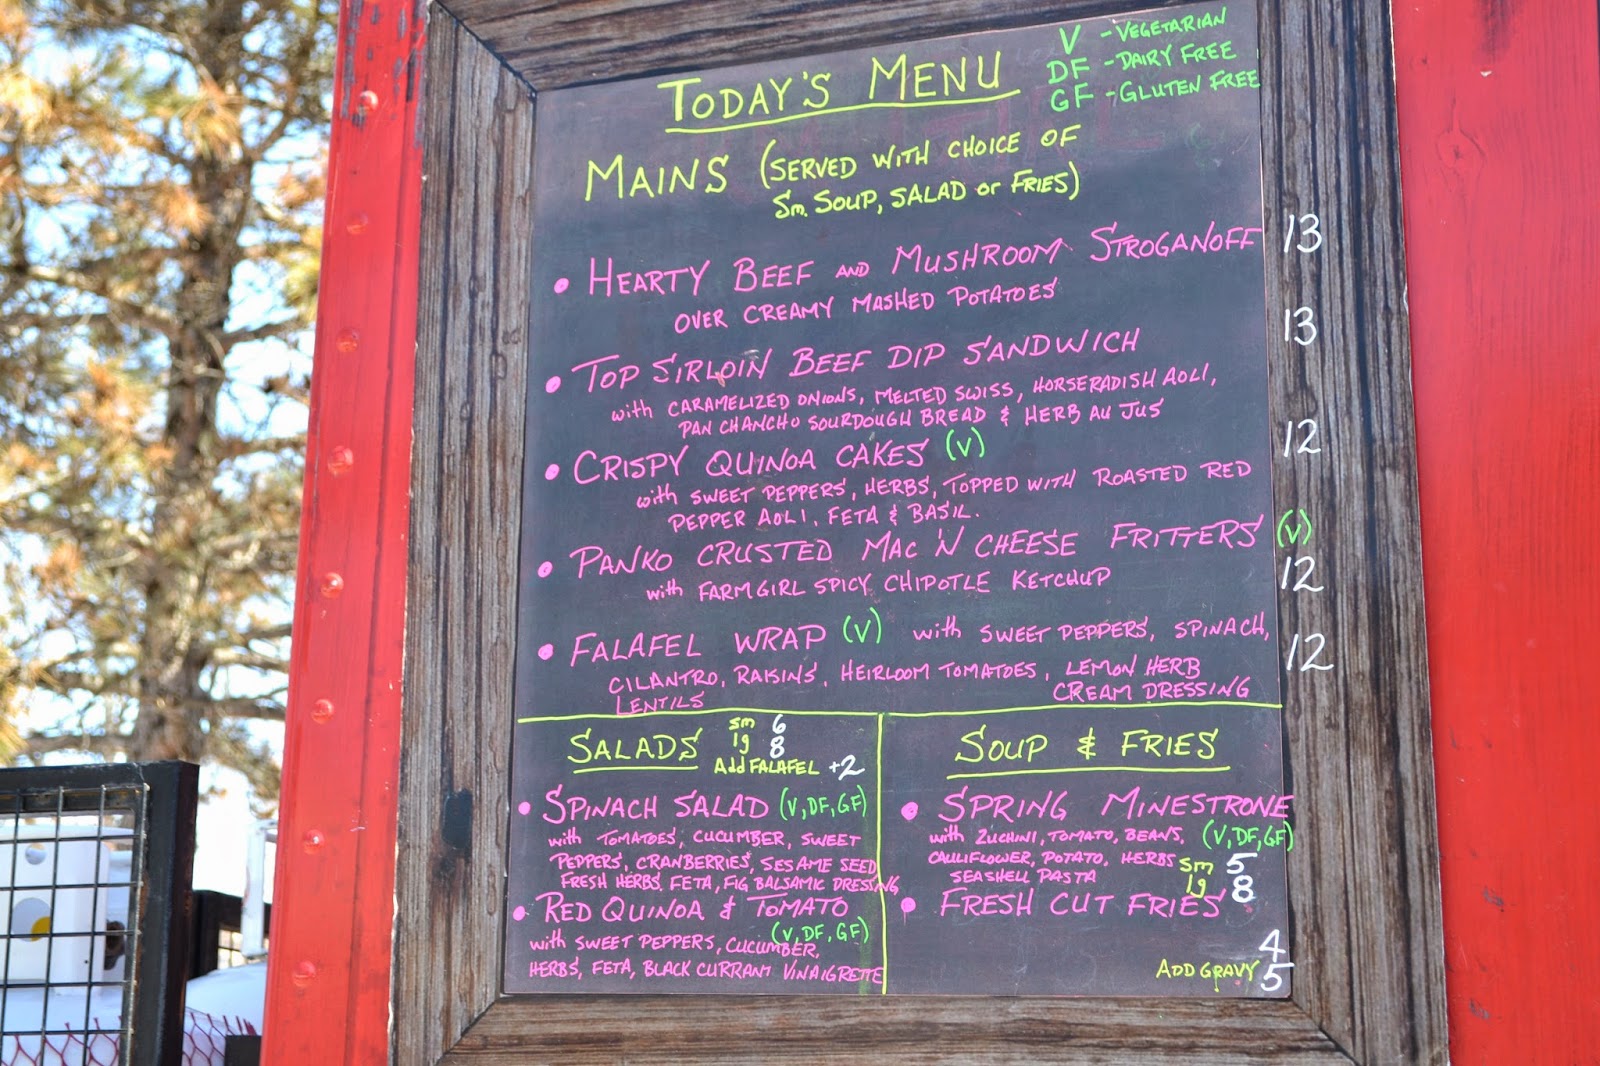 TODAY'S MENU
V - VEGETARIAN
DF - DAIRY FREE
GF - GLUTEN FREE
MAINS (SERVED WITH CHOICE OF
Sm. SOUP, SALAD or FRIES)
• HEARTY BEEF AND MUSHROOM STROGANOFF 13
OVER CREAMY MASHED POTATOES
• TOP SIRLOIN BEEF DIP SANDWICH 13
with CARAMELIZED ONIONS, MELTED SWISS, HORSERADISH AOLI,
PAN CHANCHO SOURDOUGH BREAD & HERB AU JUS
• CRISPY QUINOA CAKES (V) 12
with SWEET PEPPERS, HERBS, TOPPED WITH ROASTED RED
PEPPER AOLI, FETA & BASIL.
• PANKO CRUSTED MAC 'N CHEESE FRITTERS (V)
with FARMGIRL SPICY CHIPOTLE KETCHUP 12
• FALAFEL WRAP (V) with SWEET PEPPERS, SPINACH, 12
CILANTRO, RAISINS, HEIRLOOM TOMATOES, LEMON HERB
LENTILS CREAM DRESSING
SALADS sm 6
lg 8
Add FALAFEL +2
• SPINACH SALAD (V, DF, GF)
with TOMATOES, CUCUMBER, SWEET
PEPPERS, CRANBERRIES, SESAME SEED
FRESH HERBS, FETA, FIG BALSAMIC DRESSING
• RED QUINOA & TOMATO
(V, DF, GF)
with SWEET PEPPERS, CUCUMBER,
HERBS, FETA, BLACK CURRANT VINAIGRETTE
SOUP & FRIES
• SPRING MINESTRONE
with ZUCHINI, TOMATO, BEANS, (V, DF, GF)
CAULIFLOWER, POTATO, HERBS sm 5
SEASHELL PASTA lg 8
• FRESH CUT FRIES
4
ADD GRAVY 5